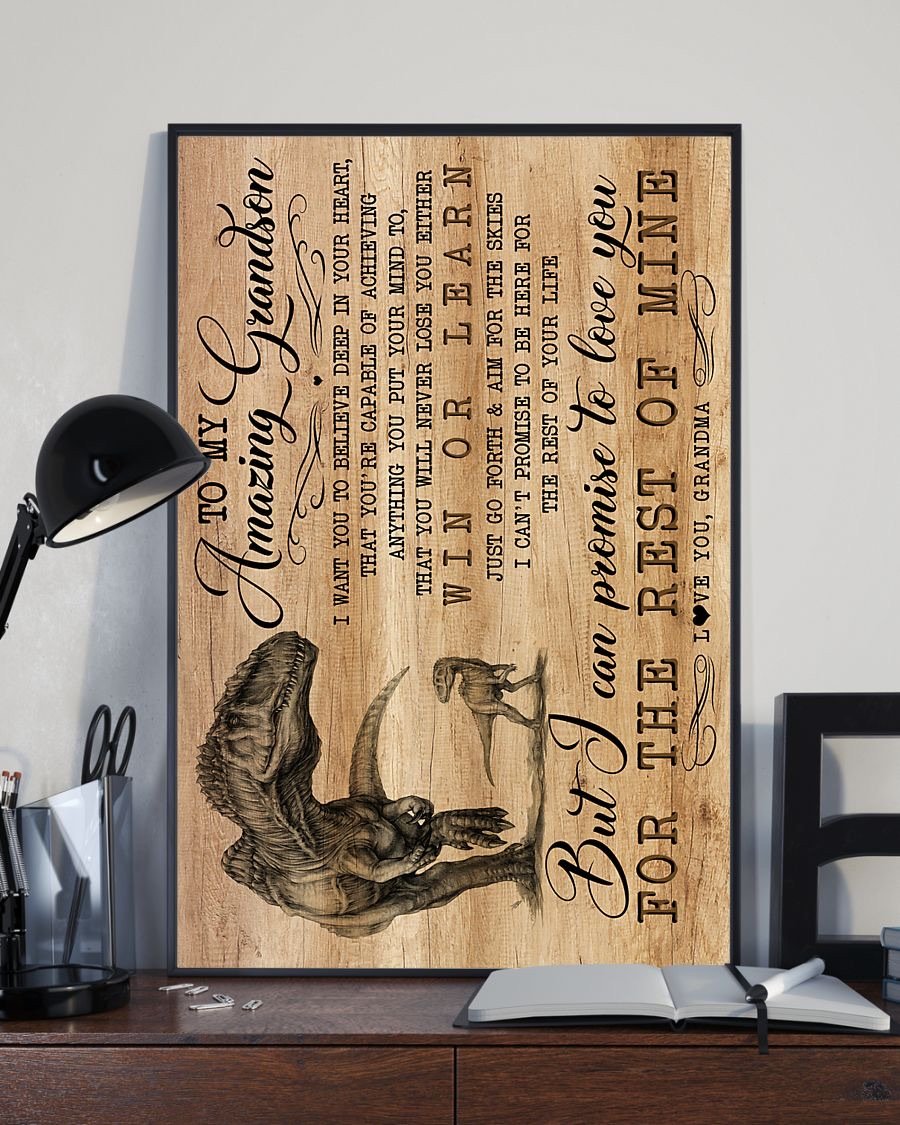 TO MY
Amazing Grandson
I WANT YOU TO BELIEVE DEEP IN YOUR HEART,
THAT YOU'RE CAPABLE OF ACHIEVING
ANYTHING YOU PUT YOUR MIND TO,
THAT YOU WILL NEVER LOSE YOU EITHER
WIN OR LEARN
JUST GO FORTH & AIM FOR THE SKIES
I CAN'T PROMISE TO BE HERE FOR
THE REST OF YOUR LIFE
But I can promise to love you
FOR THE REST OF MINE
LOVE YOU, GRANDMA